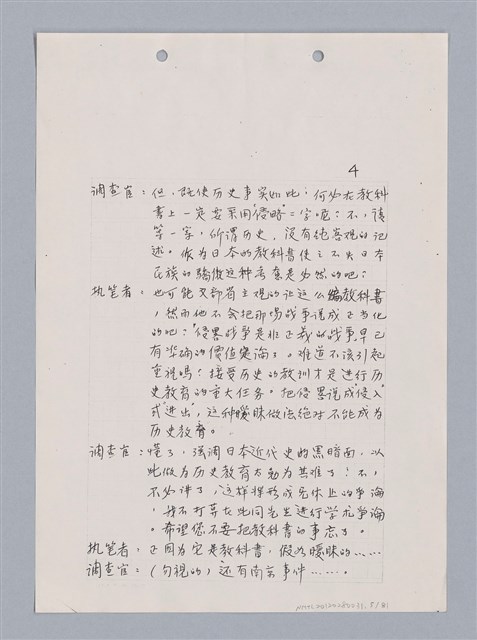 4
调查官：但，既使历史事实如此，何必在教科
書上一定要采用"侵略"二字呢：不，請
等一字，所谓历史，没有绝客观的记
述。做为日本的教科書使之不失日本
民族的骄傲这种考意是必然的吧：
执笔者：也可能文部省主观的让这么编教科書
，然而他不会把那場战争说成正当化
的吧："侵畧战争是非正義的战争早已
有準确的價值定論了。难道不该引起
重视嗎：接受历史的教訓才是进行历
史教育的重大任务。把"侵畧说成"侵入"
或"进出"，这种曖昧做法绝对不能成为
历史教育。
调查官：懂了，强调日本近代史的黑暗面，以
此做为历史教育太勉为其难了：不，
不必讲了，这样将形成无休止的争論
，我不打弄在此同先生进行学术争論
。希望您不要把教科書的事忘了。
执笔者：正因为它是教科書，假如曖昧的……
调查官：（勿视的）还有南京事件……。